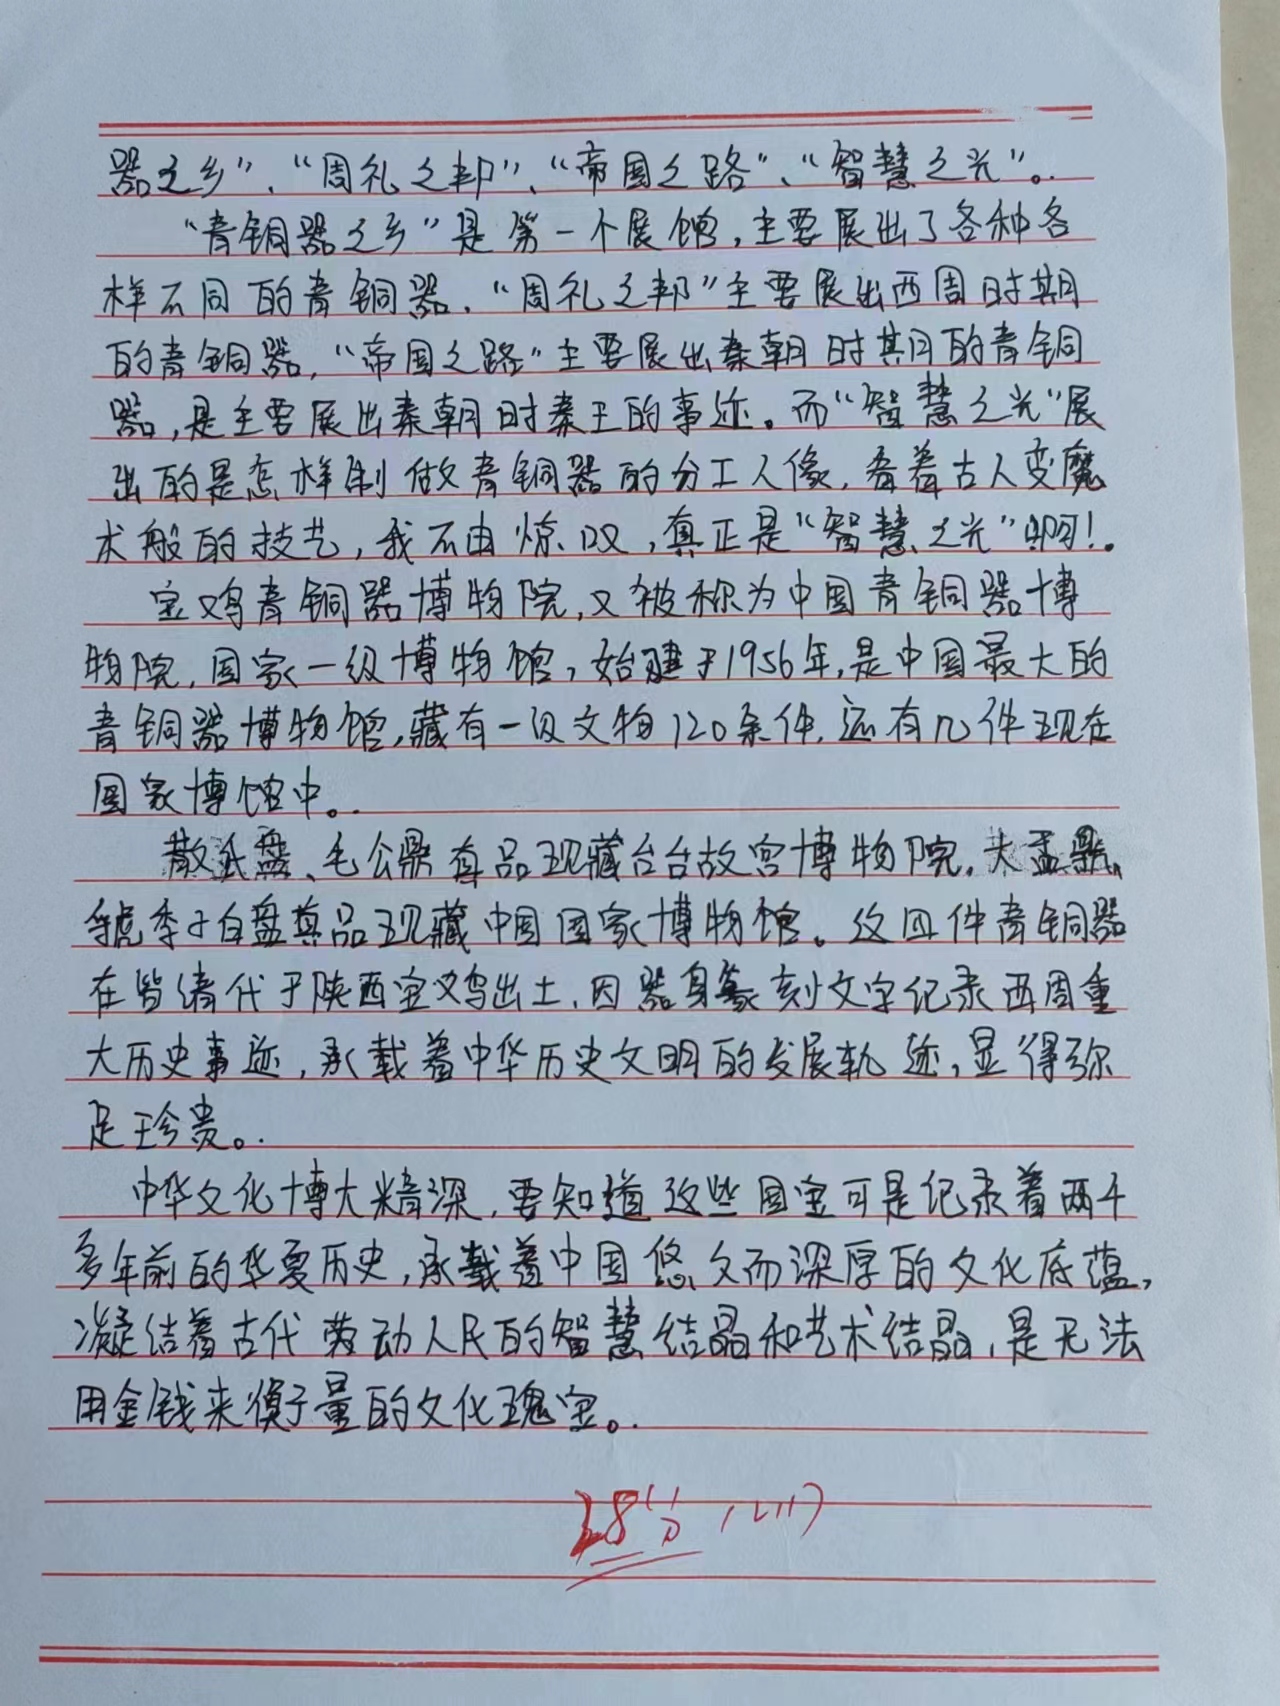 器之乡”、“周礼之邦”、“帝国之路”、“智慧之光”。
“青铜器之乡”是第一个展馆，主要展出了各种各
样不同的青铜器，“周礼之邦”主要展出西周时期
的青铜器，“帝国之路”主要展出秦朝时期的青铜
器，是主要展出秦朝时秦王的事迹。而“智慧之光”展
出的是怎样制做青铜器的分工人像，看着古人变魔
术般的技艺，我不由惊叹，真正是“智慧之光”啊！
宝鸡青铜器博物院，又被称为中国青铜器博
物院，国家一级博物馆，始建于1956年，是中国最大的
青铜器博物馆，藏有一级文物120余件，还有几件现在
国家博馆中。
散氏盘、毛公鼎真品现藏台台故宫博物院，大盂鼎、
虢季子白盘真品现藏中国国家博物馆。这四件青铜器
在皆清代于陕西宝鸡出土，因器身篆刻文字记录西周重
大历史事迹，承载着中华历史文明的发展轨迹，显得弥
足珍贵。
中华文化博大精深，要知道这些国宝可是记录着两千
多年前的华夏历史，承载着中国悠文而深厚的文化底蕴，
凝结着古代劳动人民的智慧结晶和艺术结晶，是无法
用金钱来衡量的文化瑰宝。
28分